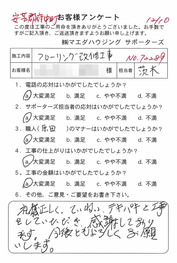 安芸郡府中町 お客様アンケート 12/10
この度は工事のご用命を頂きありがとうございました。お手数
ですがご記入頂き、ご返送頂きますようお願い申し上げます。
㈱マエダハウジング サポーターズ
施工内容 フローリング改修工事 No.70289
お客様名 様 担当者 茨木
1. 電話の応対はいかがでしたでしょうか?
a 大変満足 b. 満足 c. やや不満 d. 不満
2. サポーターズ担当者の応対はいかがでしたでしょうか?
a 大変満足 b. 満足 c. やや不満 d. 不満
3. 職人( 田)のマナーはいかがでしたでしょうか?
a 大変満足 b. 満足 c. やや不満 d. 不満
4. 工事の仕上がりはいかがでしたでしょうか?
a 大変満足 b. 満足 c. やや不満 d. 不満
5. 工事の価格はいかがでしたでしょうか?
a 大変満足 b. 満足 c. やや不満 d. 不満
6. その他、ご意見・ご要望をお書き下さい。
礼儀正しく、ていねい、テキパキと工事
をしていただき、感謝しており
ます。今後ともよろしくお願
いします。